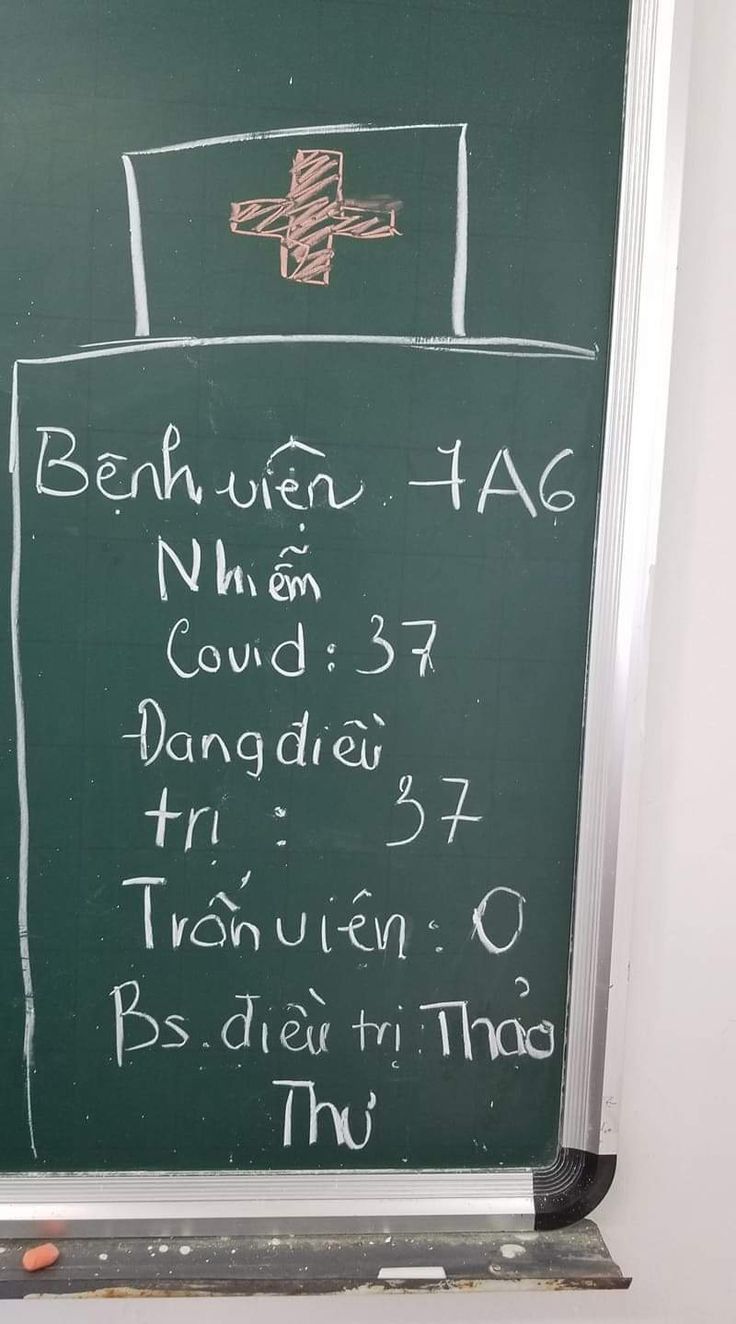 Bệnh viện 7A6
Nhiễm
Covid: 37
Đang điều
trị : 37
Trốn viện: 0
Bs. điều trị: Thảo
Thư